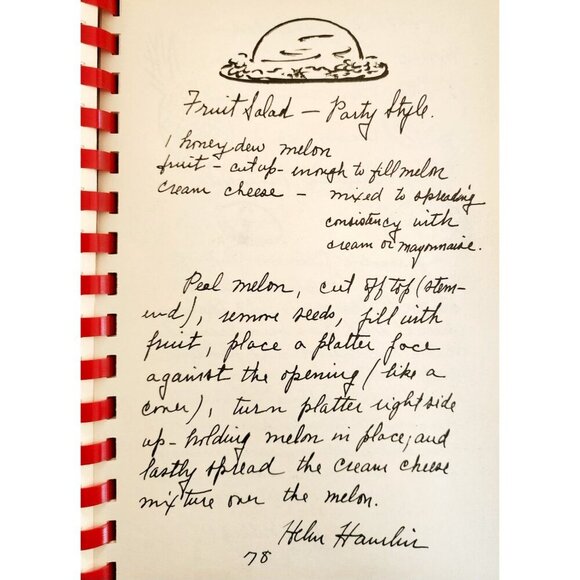 Fruit Salad – Party Style.
1 honeydew melon
fruit – cut up – enough to fill melon
cream cheese – mixed to spreading
consistency with
cream or mayonnaise.
Peel melon, cut off top (stem-
end), remove seeds, fill with
fruit, place a platter face
against the opening (like a
cover), turn platter right side
up – holding melon in place; and
lastly spread the cream cheese
mixture over the melon.
Helen
78